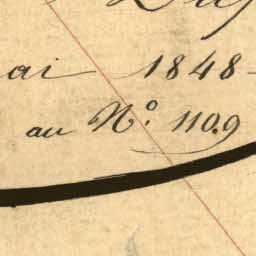 ai 1848-
au N.° 1109